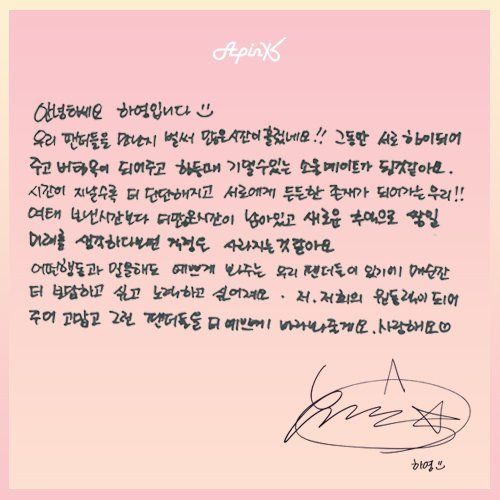 Apink
안녕하세요 하영입니다
우리 팬더들을 만난지 벌써 많은시간이 흘렀네요!! 그동안 서로 힘이되어
주고 버팀목이 되어주고 힘들때 기댈수있는 소울메이트가 된것같아요.
시간이 지날수록 더 단단해지고 서로에게 든든한 존재가 되어가는우리!!
여태 보낸시간보다 더많은시간이 남아있고 새로운 추억으로 쌓일
미래를 생각하다보면 걱정은 사라지는것같아요
어떤행동과 말을해도 예쁘게 봐주는 우리 팬더들이 있기에 매순간
더 보답하고 싶고 노력하고 싶어져요. 저, 저희의 원동력이되어
주어 고맙고 그런 팬더들을 더 예쁘게 바라봐줄게요. 사랑해요♡
하영